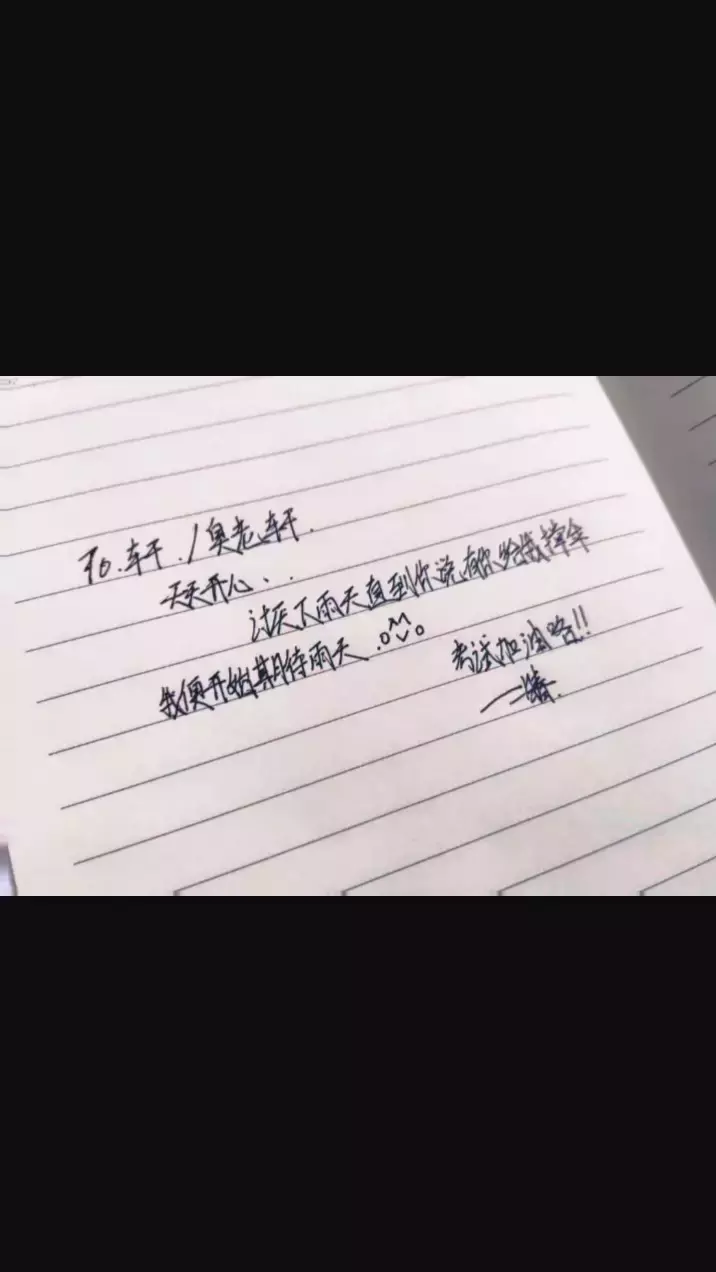 To.轩./奥老.轩.
天天开心..
讨厌下雨天直到你说,有你给我撑伞
我便开始期待雨天.
考试加油哈!!